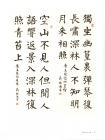 獨坐幽篁裏彈琴復
長嘯深林人不知明
月來相照
空山不見人但聞人
語響返景入深林復
照青苔上